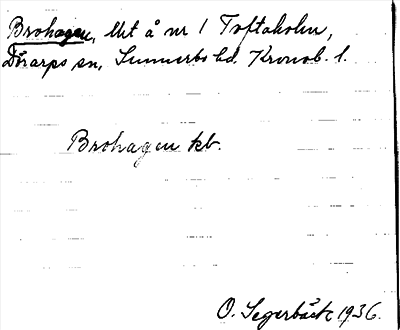 Brohagen, lht å nr 1 Toftaholm,
Dörarps sn, Sunnerbo hd. Kronob. l.
Brohagen kb.
O. Segerbäck 1936.